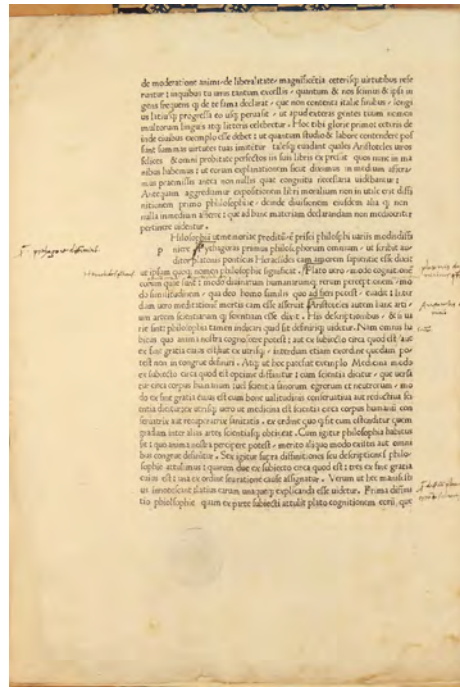 de moderatione animi de liberalitate magnificētia ceterisq; uirtutibus refe
runtur : in quibus tu unus tantum excellis quantum & nos scimus & ipsa in
gens frequens q; de te fama declarat que non contenta italie finibus longi
us latiusq; progressa eo usq; peruasit ut apud exteras gentes tuum nomen
multorum lingua atq; litteris celebretur . Hoc tibi glorie primot ceteris de
inde ciuibus exemplo esse debet : ut quantum studio & labore contendere pos
sint summas uirtutes tuas imitētur talesq; euadant quales Aristoteles uiros
felices & omni probitate perfectos in suis libris expressit quos nunc in ma
nibus habemus : ut eorum explanationem sicut diximus in medium afferamus
mus praemissis antea non nullis quae cognitu necessaria uidebantur :
Antequam aggrediamur expositionem libri moralium non inutile erit diffi
nitionem primo philosophie deinde diuisionem eiusdem alia q; non
nulla in medium afferre : que ad hanc materiam declarandam non mediocriter
pertinere uidentur .
Philosophia ut memoriae prodiderūt prisci philosophi uariis modis diffi
p niere . Pythagoras primus philosophorum omnium ut scribit au
ditor platonis ponticus Heraclides eam amorem sapientie esse dixit
ut ipsum quoq; nomen philosophie significat . Plato uero modo cognitionē
eorum que sunt : modo diuinarum humanarumq; rerum perceptionem mo
do similitudinem qua deo homo similis quo ad fieri potest euadit : inter
dum uero meditationē mortis eam esse asseruit Aristoteles autem hanc arti
um artem scientiarum q; scientiam esse dixit . His descriptionibus & si ua
rie sint philosophia tamen indicari quid sit definiriq; uidetur . Nam omnis ha
bitus quo anima nostra cognoscere potest : aut ex subiecto circa quod est aut
ex fine gratia cuius est aut ex utrisq; interdum etiam ex ordine quodam po
test non incongrue definiri . Atq; ut hec patefiat exemplo Medicina modo
ex subiecto circa quod est optime diffinitur : cum scientia dicitur que uersa
tur circa corpus humanum uel scientia sanorum egrorum et neutrorum mo
do ex fine gratia cuius est cum bone ualitudinis conseruatiua aut reductiua sci
entia dicitur : ex utrisq; uero ut medicina est scientia circa corpus humanū con
seruatrix aut recuperatrix sanitatis . ex ordine quo q; sit cum ostenditur quem
gradum inter alias artes scientiasq; obtineat . Cum igitur philosophia habitus
sit : quo anima nostra percipere potest merito aliquo modo existit aut omni
bus congrue definitur . Sex igitur supra diffinitiones seu descriptiones philo
sophie attulimus : quarum due ex subiecto circa quod est : tres ex fine gratia
cuius est : una ex ordine seu ratione cause assignatur . Verum ut hec manifesti
us innotescant planius earum unaqueq; explicanda esse uidetur . Prima diffini
tio phielsophie quam ex parte subiecti attulit plato cognitionem eorū que